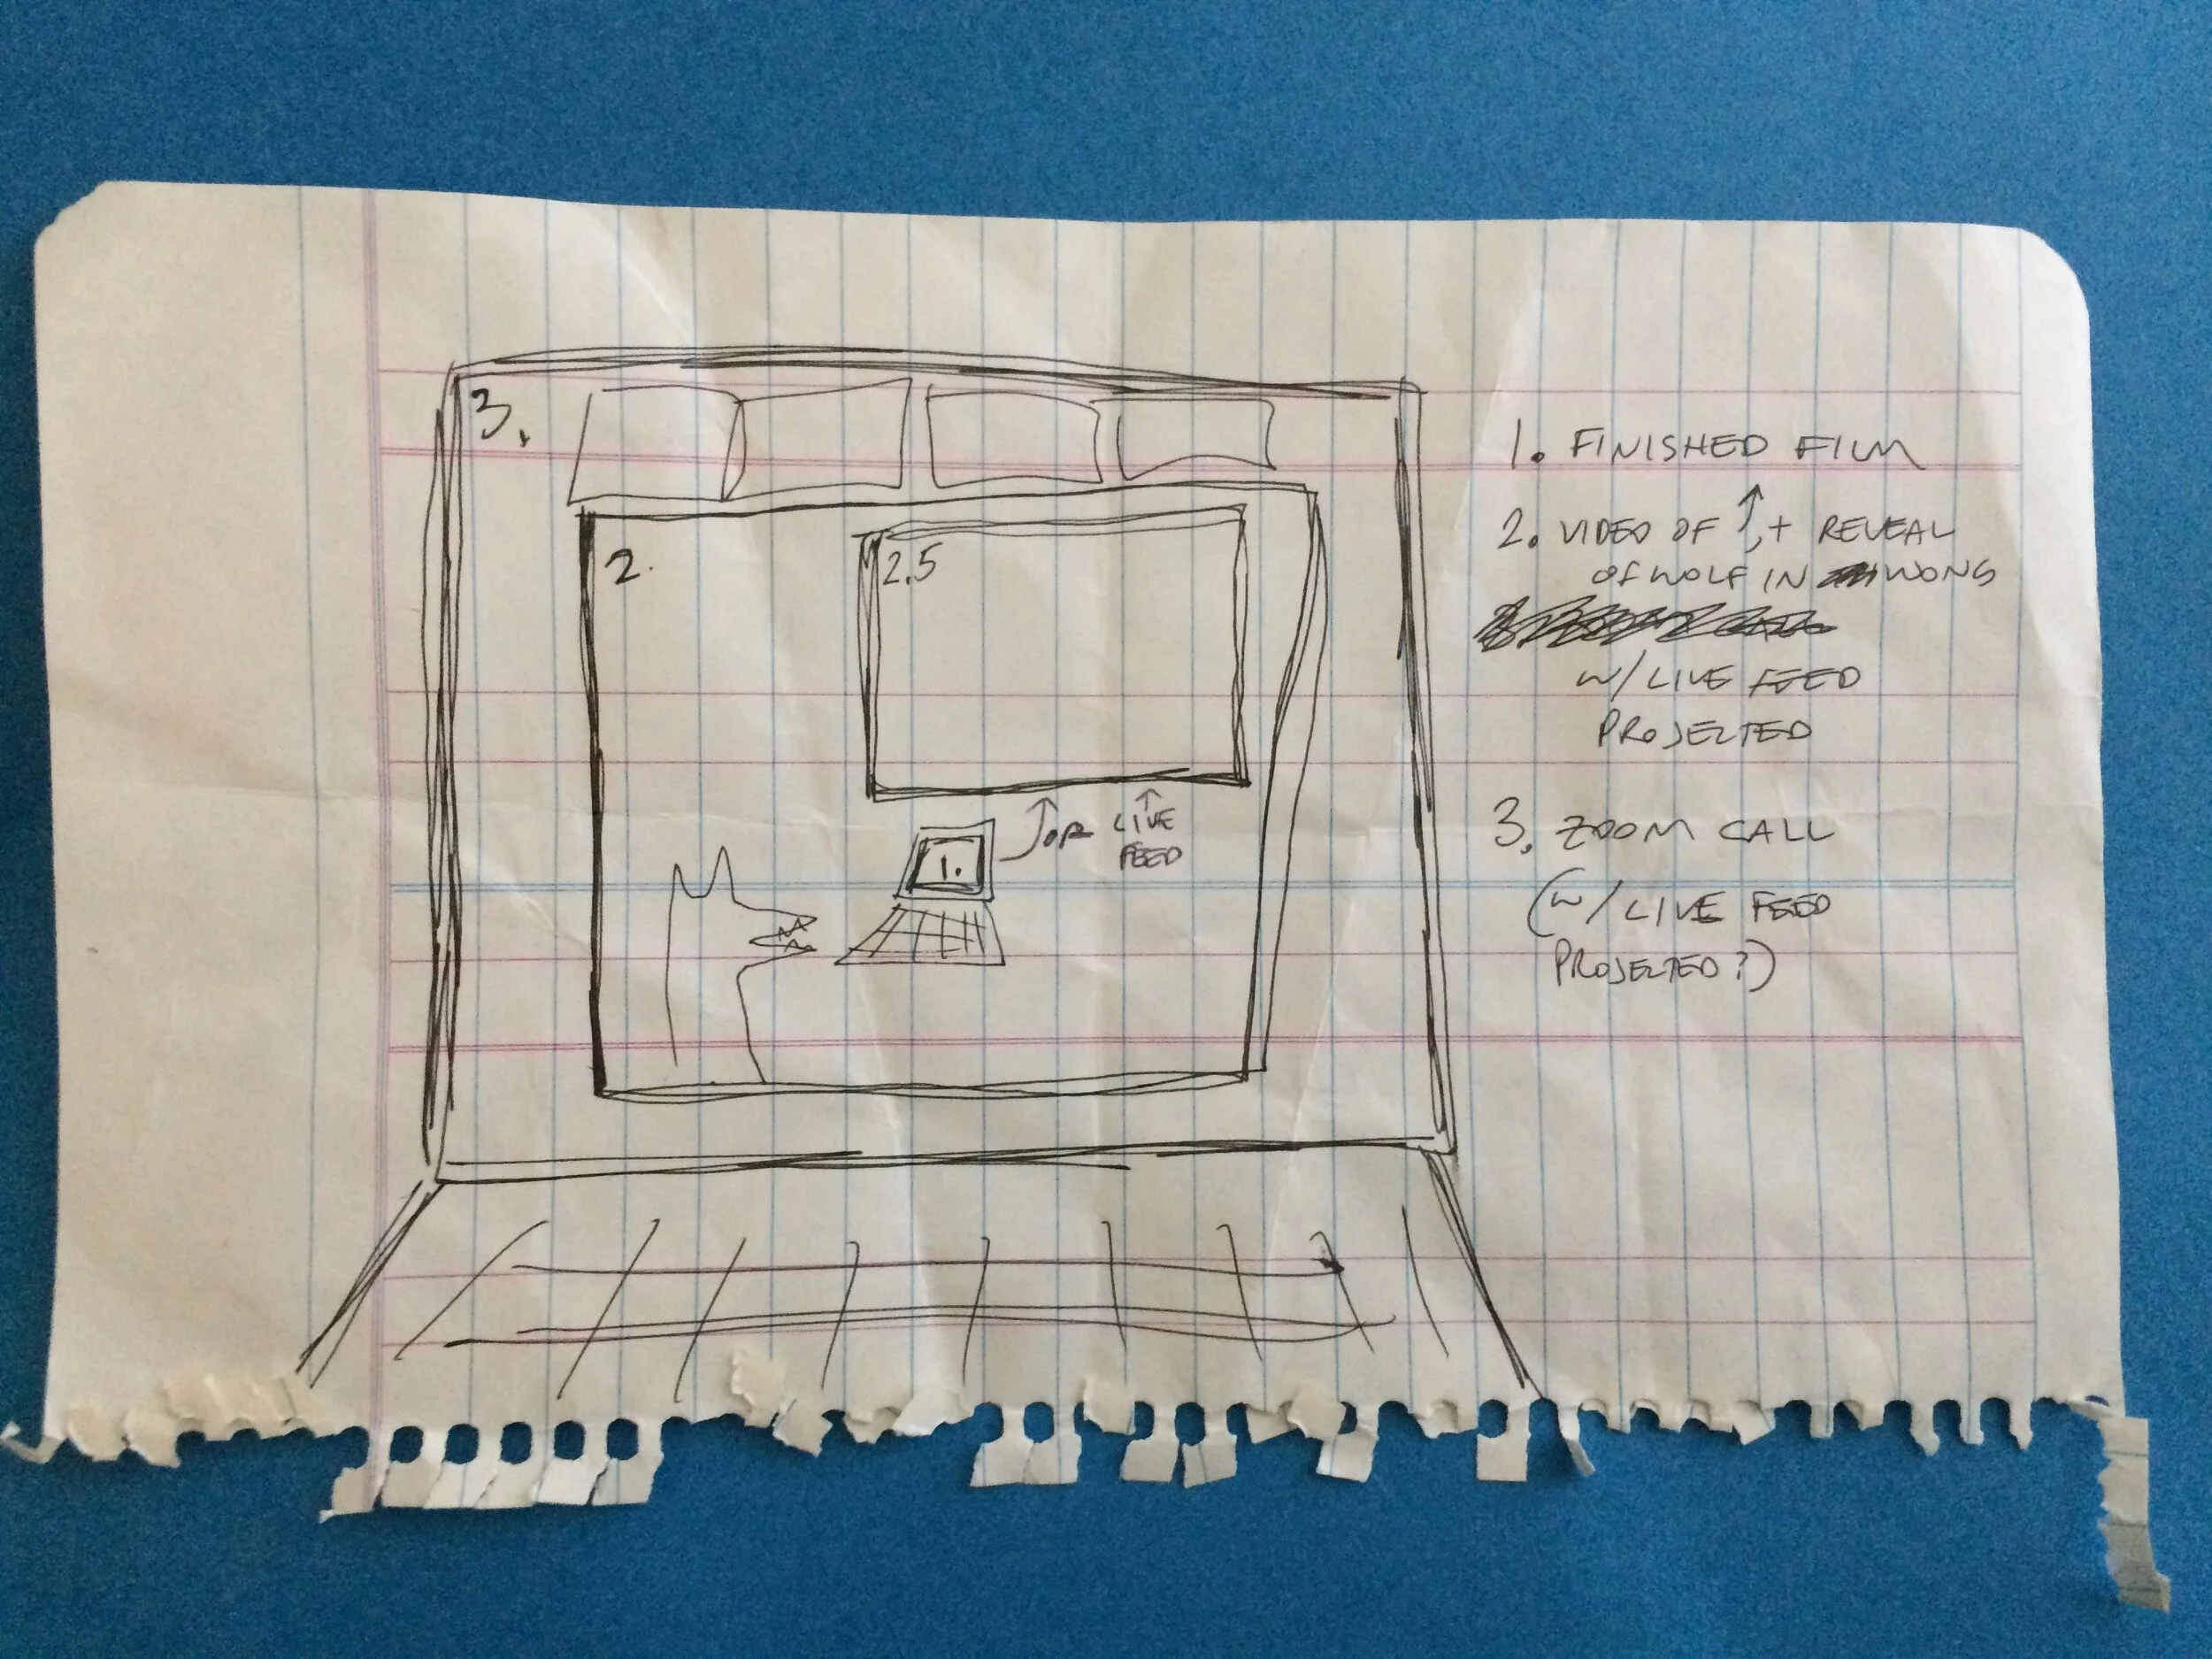 3.
2.
2.5
1.
OR LIVE
FEED
1. FINISHED FILM
2. VIDEO OF ↑, + REVEAL
OF WOLF IN WONG
W/ LIVE FEED
PROJECTED
3. ZOOM CALL
(W/ LIVE FEED
PROJECTED?)